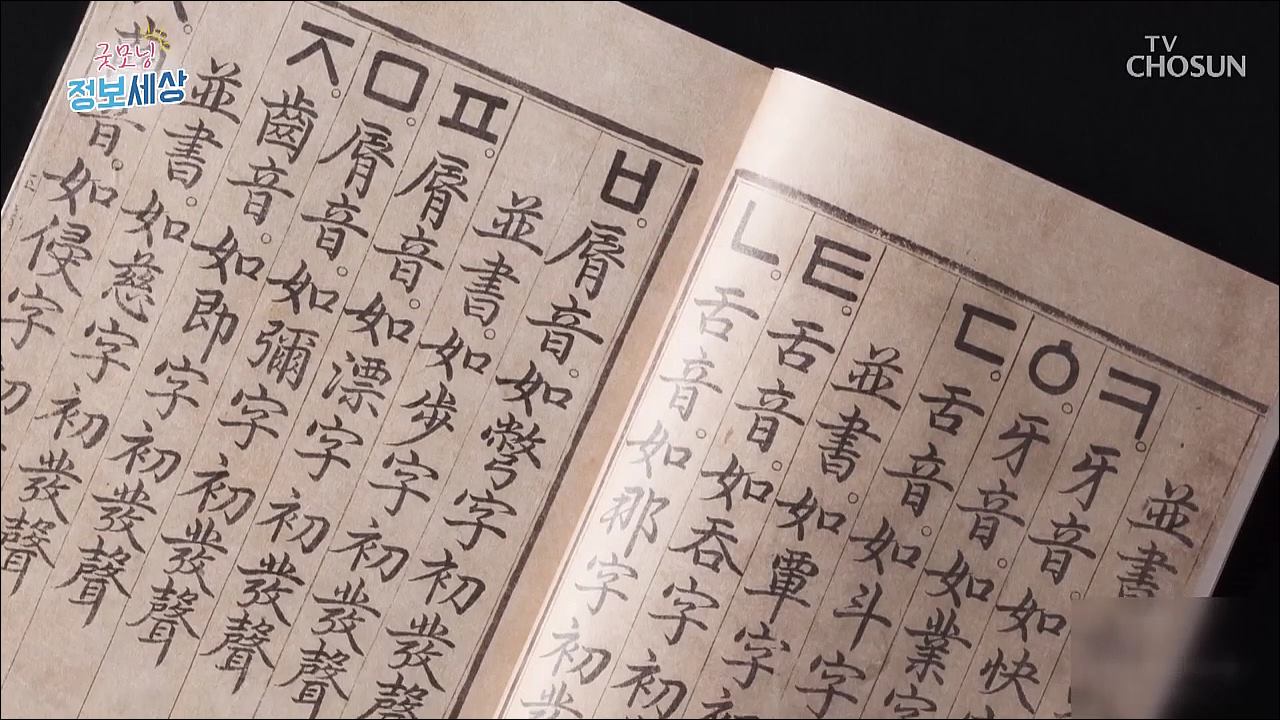 굿모닝
정보세상
TV
CHOSUN
並書
ㅋ。牙音。如快
ㆁ。牙音。如業字
ㄷ。舌音。如斗字
並書。如覃字初
ㅌ。舌音。如吞字初
ㄴ。舌音。如那字初發
ㅂ。脣音。如彆字初發聲
並書。如步字初發聲
ㅍ。脣音。如漂字初發聲
ㅁ。脣音。如彌字初發聲
ㅈ。齒音。如即字初發聲
並書。如慈字初發聲
音。如侵字